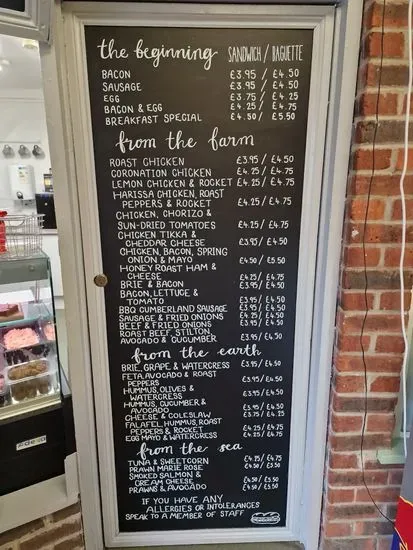 the beginning SANDWICH / BAGUETTE
BACON £3.95 / £4.50
SAUSAGE £3.95 / £4.50
EGG £3.75 / £4.25
BACON & EGG £4.25 / £4.75
BREAKFAST SPECIAL £4.50 / £5.50
from the farm
ROAST CHICKEN £3.95 / £4.50
CORONATION CHICKEN £4.25 / £4.75
LEMON CHICKEN & ROCKET £4.25 / £4.75
HARISSA CHICKEN, ROAST
PEPPERS & ROCKET £4.25 / £4.75
CHICKEN, CHORIZO &
SUN-DRIED TOMATOES £4.25 / £4.75
CHICKEN TIKKA &
CHEDDAR CHEESE £3.95 / £4.50
CHICKEN, BACON, SPRING
ONION & MAYO £4.50 / £5.50
HONEY ROAST HAM &
CHEESE £4.25 / £4.75
BRIE & BACON £3.95 / £4.50
BACON, LETTUCE &
TOMATO £3.95 / £4.50
BBQ CUMBERLAND SAUSAGE £3.95 / £4.50
SAUSAGE & FRIED ONIONS £4.25 / £4.50
BEEF & FRIED ONIONS £3.95 / £4.50
ROAST BEEF, STILTON £3.95 / £4.50
AVOCADO & CUCUMBER £3.95 / £4.50
from the earth
BRIE, GRAPE & WATERCRESS £3.95 / £4.50
FETA, AVOCADO & ROAST
PEPPERS £3.95 / £4.50
HUMMUS, OLIVES &
WATERCRESS £3.95 / £4.50
HUMMUS, CUCUMBER &
AVOCADO £3.95 / £4.50
CHEESE & COLESLAW £3.75 / £4.25
FALAFEL, HUMMUS, ROAST
PEPPERS & ROCKET £4.25 / £4.75
EGG MAYO & WATERCRESS £4.25 / £4.75
from the sea
TUNA & SWEETCORN £4.25 / £4.75
PRAWN MARIE ROSE £4.50 / £5.50
SMOKED SALMON &
CREAM CHEESE £4.50 / £5.50
PRAWNS & AVOCADO £4.50 / £5.50
IF YOU HAVE ANY
ALLERGIES OR INTOLERANCES
SPEAK TO A MEMBER OF STAFF